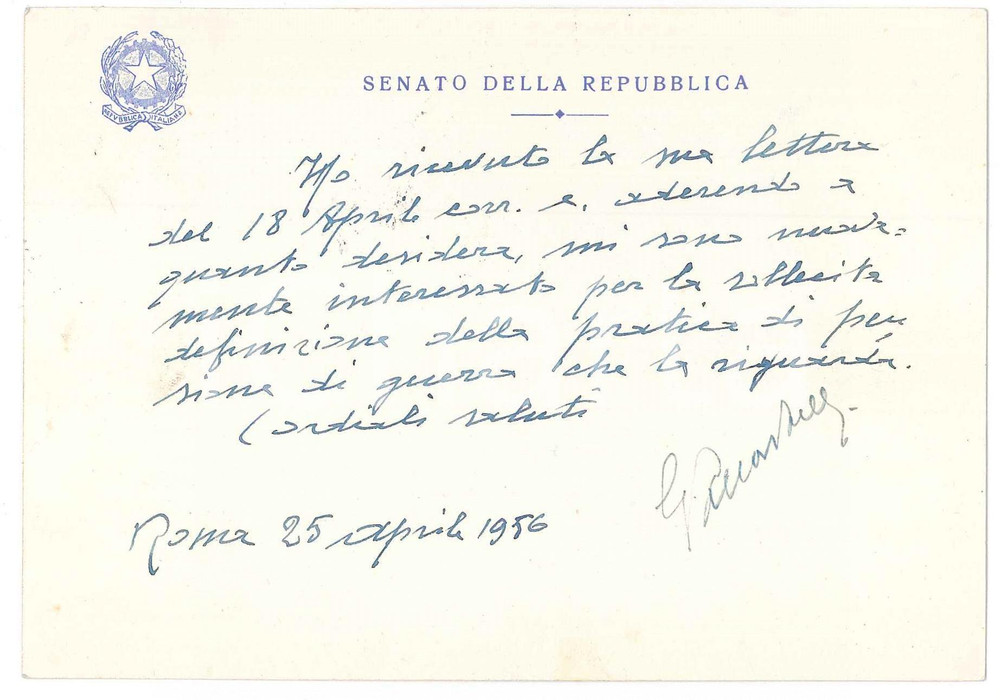 SENATO DELLA REPUBBLICA
REPVBBLICA ITALIANA
Ho ricevuto la sua lettera
del 18 Aprile corr. e, aderendo a
quanto desidera, mi sono nuova=
mente interessato per la sollecita
definizione della pratica di pen
sione di guerra che la riguarda.
Cordiali saluti
Roma 25 aprile 1956